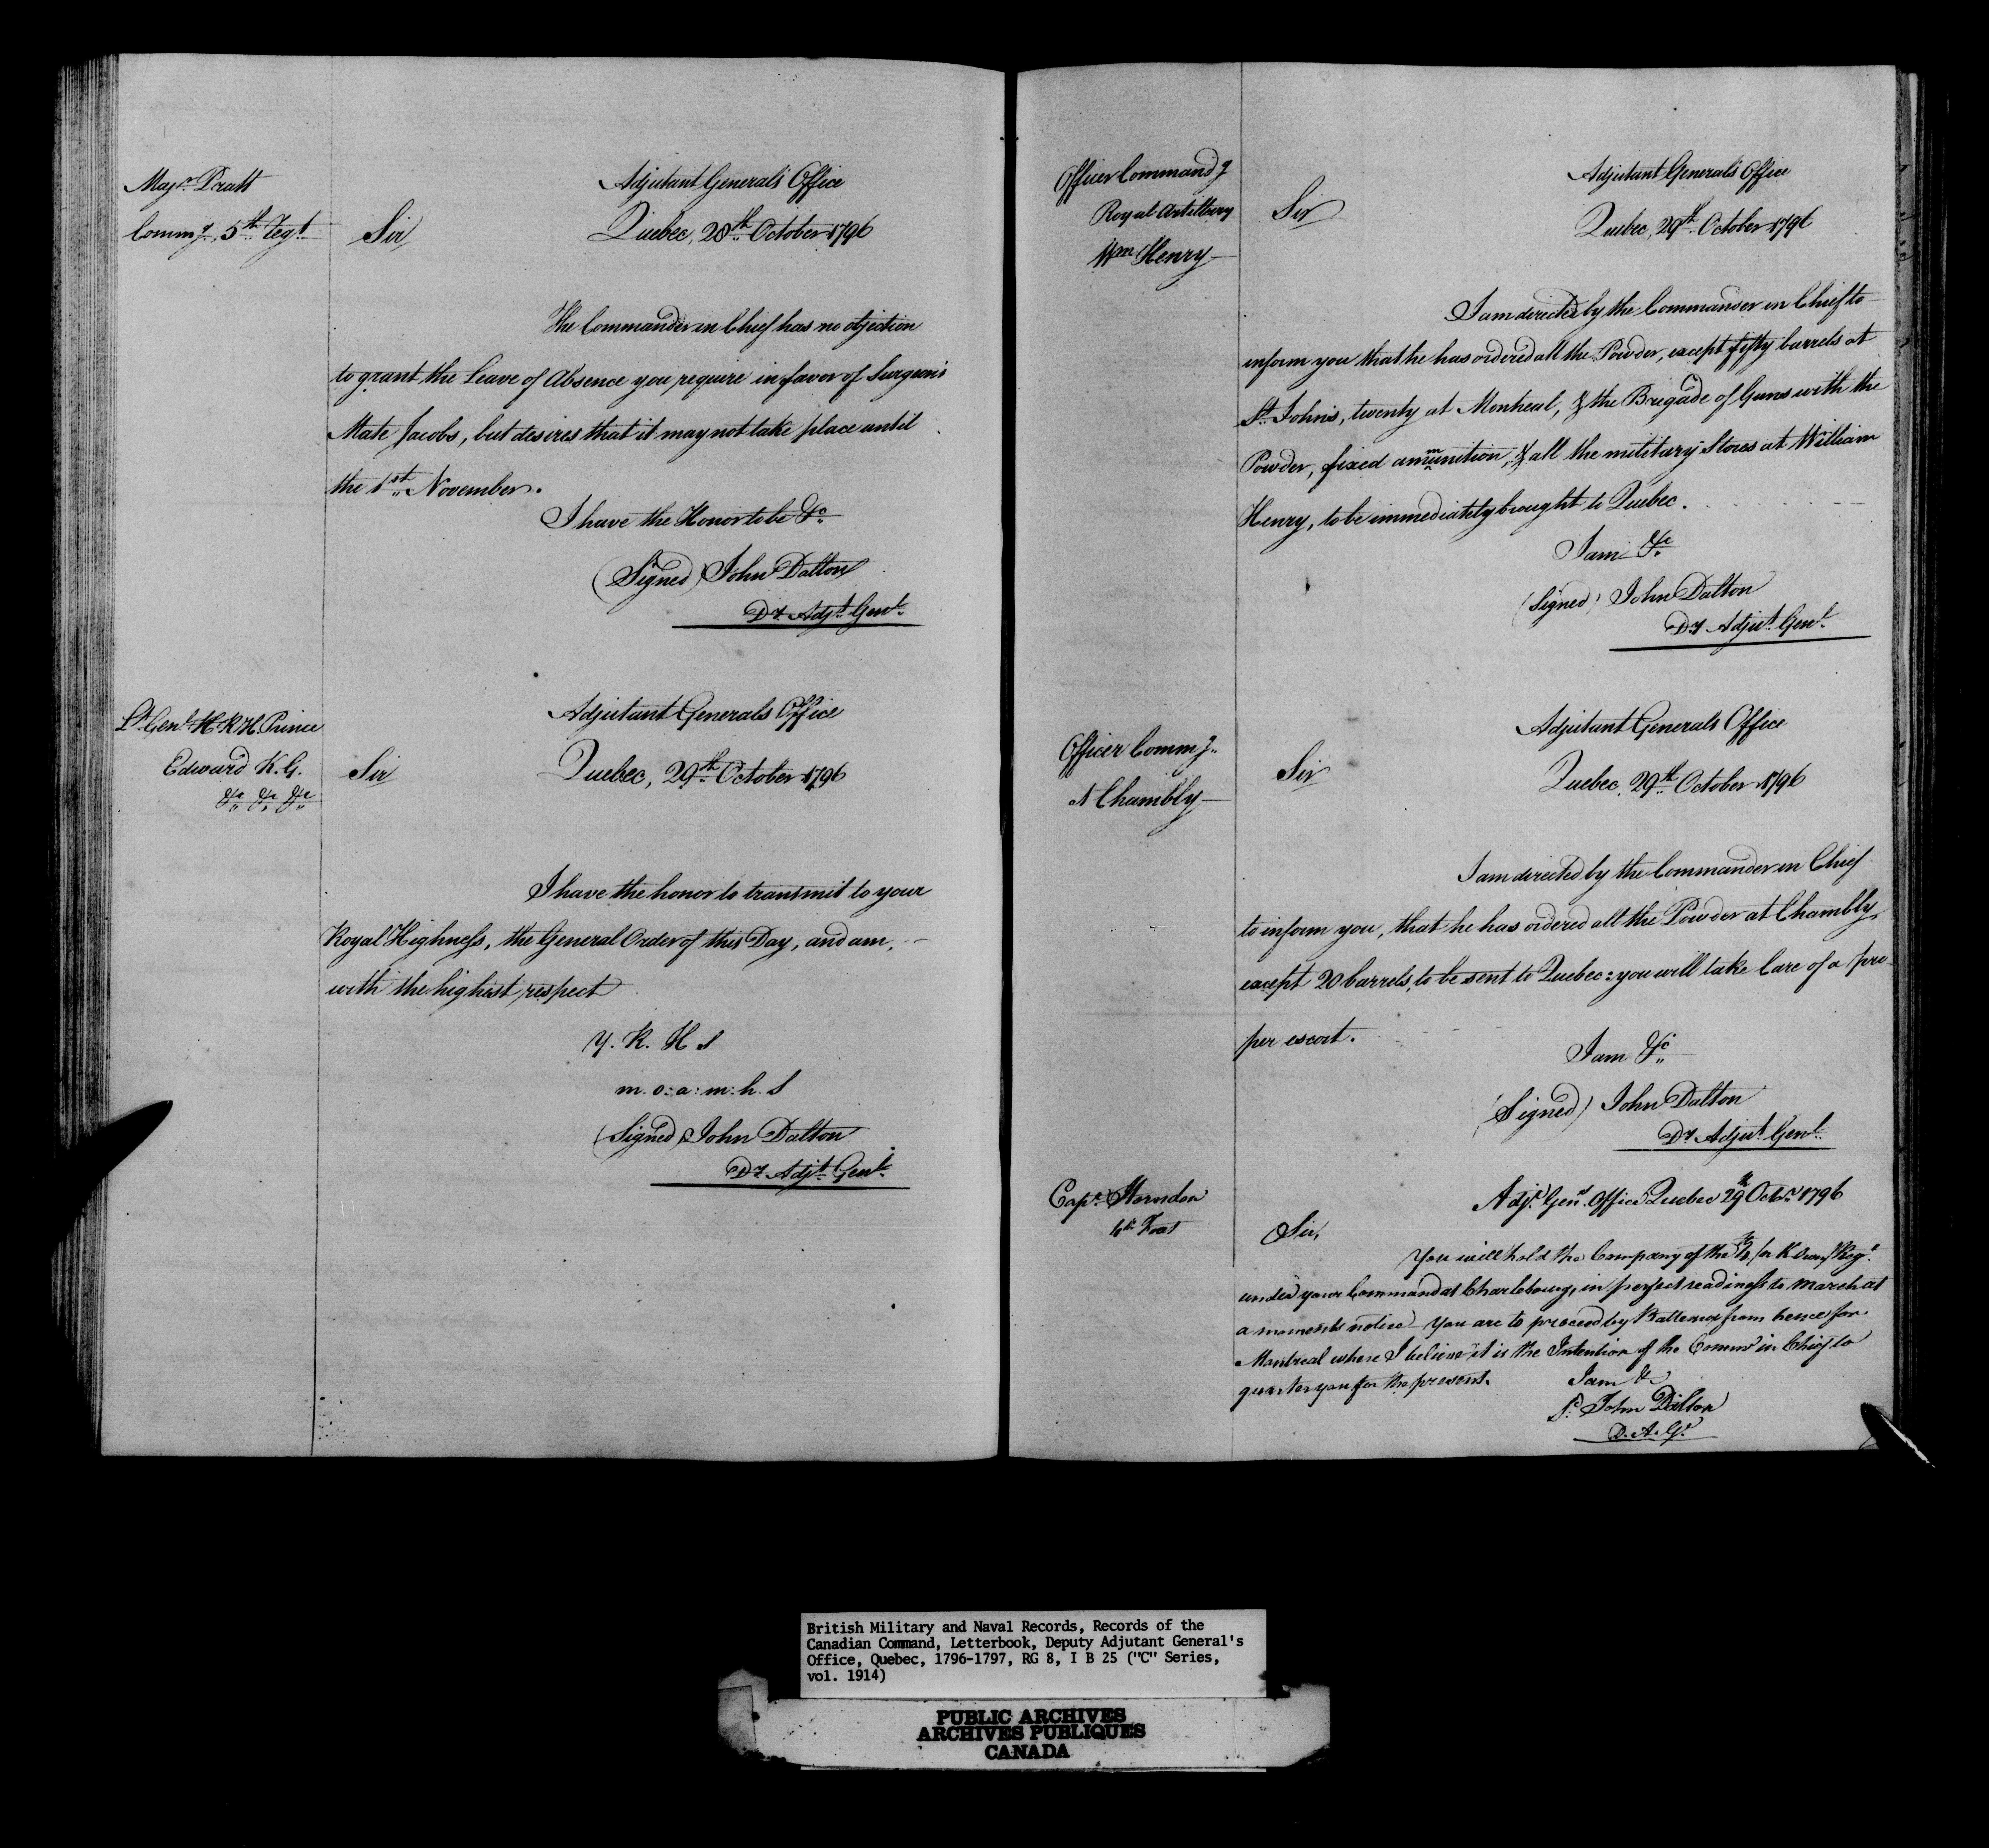 Majr. Pratt
Commg. 5th Regt.
Adjutant Generals Office
Sir
Quebec, 28th October 1796
The Commander in Chief has no objection
to grant the Leave of Absence you require in favor of Surgeon's
Mate Jacobs, but desires that it may not take place until
the 1st November.
I have the Honor to be &c
(Signed) John Dalton
Dy. Adjt. Genl.
Lt. Genl. H.R.H. Prince
Edward K.G.
&c &c &c
Adjutant Generals Office
Sir
Quebec, 29th October 1796
I have the honor to transmit to your
Royal Highness, the General Order of this Day, and am,
with the highest respect
Y. R. H s
m. o: a: m: h. S
(Signed) John Dalton
Dy. Adjt. Genl.
Officer Command g
Royal Artillery
Wm Henry
Adjutant Generals Office
Sir
Quebec, 29th October 1796
I am directed by the Commander in Chief to
inform you that he has ordered all the Powder, except fifty barrels at
St. Johns, twenty at Montreal, & the Brigade of Guns with the
Powder, fixed ammunition, & all the military Stores at William
Henry, to be immediately brought to Quebec.
I am &c
(Signed) John Dalton
Dy Adjut. Genl.
Officer Commg.
at Chambly
Adjutant Generals Office
Sir
Quebec, 29th October 1796
I am directed by the Commander in Chief
to inform you, that he has ordered all the Powder at Chambly,
except 20 barrels, to be sent to Quebec: you will take Care of a pro
per escort.
I am &c
(Signed) John Dalton
Dy. Adjut. Genl.
Capt.
Foot
Adjt. Genl. Office Quebec 29th Octr. 1796
Sir,
You will hold the Company of the Regt.
under your Command at Charlebourg, in perfect readiness to march at
a moments notice You are to proceed by Batteaux from hence for
Montreal where I believe it is the Intention of the Commr in Chief to
quarter you for the present.
I am &
Sd. John Dalton
D. A. G.
British Military and Naval Records, Records of the
Canadian Command, Letterbook, Deputy Adjutant General's
Office, Quebec, 1796-1797, RG 8, I B 25 ("C" Series,
vol. 1914)
PUBLIC ARCHIVES
ARCHIVES PUBLIQUES
CANADA